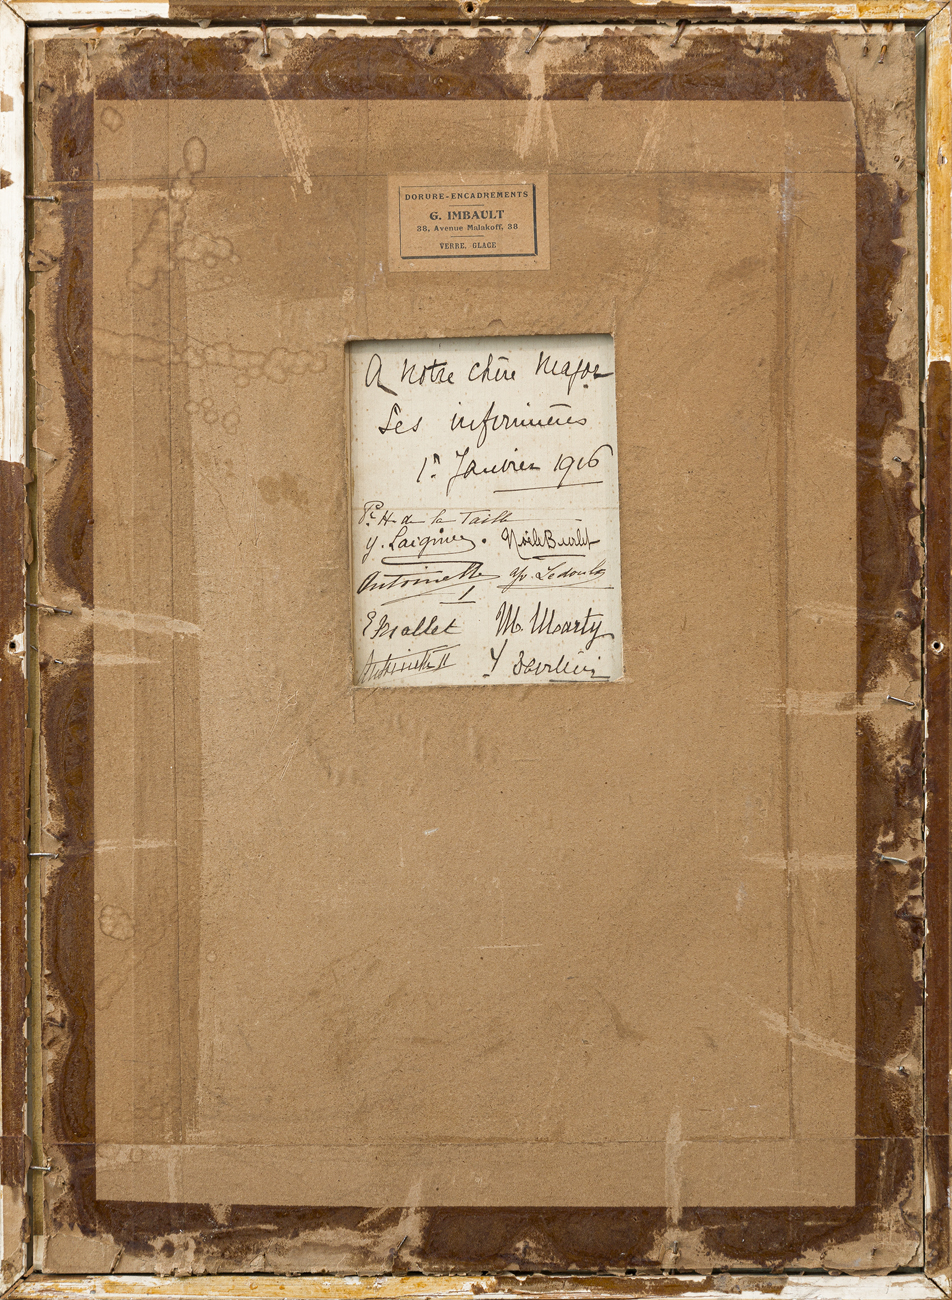 DORURE-ENCADREMENTS
G. IMBAULT
38, Avenue Malakoff, 38
VERRE, GLACE
A Notre chère Major
Ses infirmières
1er Janvier 1916
H. de la Taille
Y. Laignier.
Antoinette
I
E Mallet M. Marty
Antoinette II Y